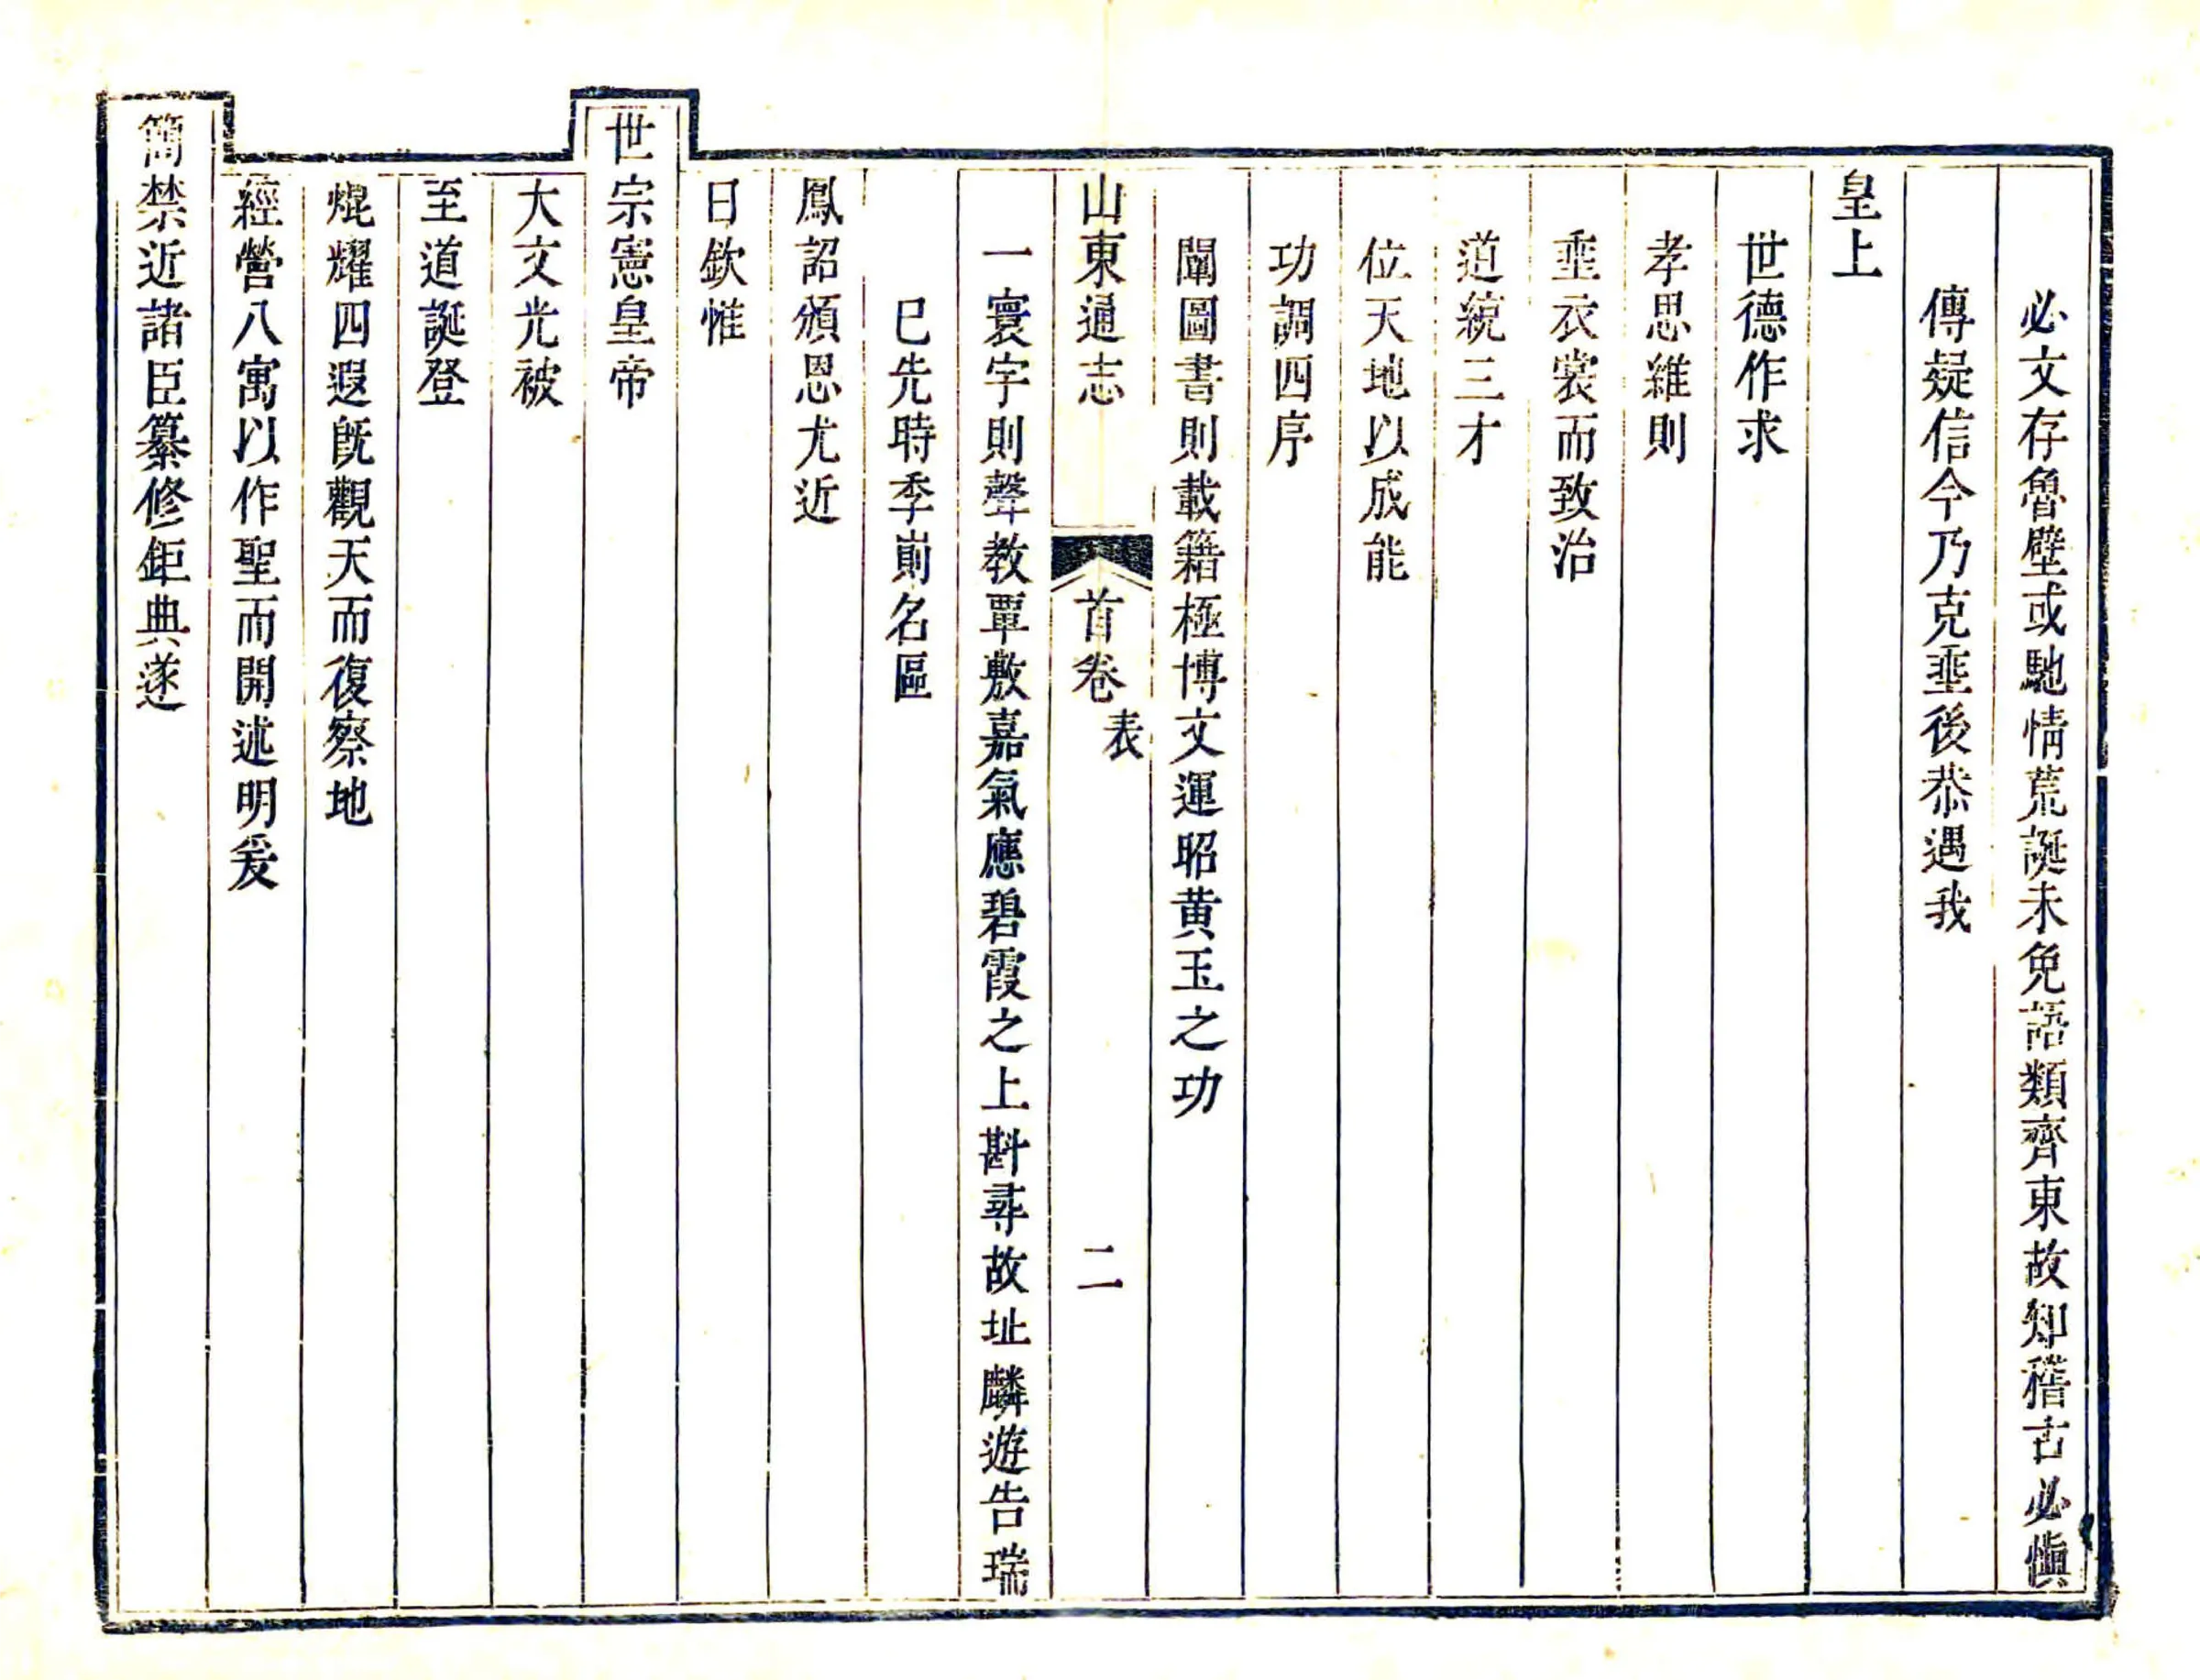 必文存魯壁或馳情荒誕未免語類齊東故知稽古必愼
傳疑信今乃克垂後恭遇我
皇上
世德作求
孝思維則
垂衣裳而致治
道統三才
位天地以成能
功調四序
闡圖書則載籍極博文運昭黃玉之功
山東通志
首卷
表
二
一寰宇則聲教覃敷嘉氣應碧霞之上斟尋故址麟遊告瑞
巳先時季崱名區
鳳詔頒恩尤近
日欽惟
世宗憲皇帝
大文光被
至道誕登
焜耀四遐旣觀天而復察地
經營八寓以作聖而開述明爰
簡禁近諸臣纂修鉅典遂